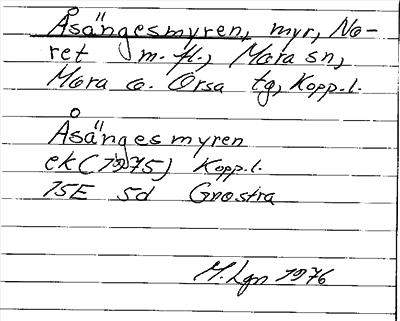 Åsängesmyren, myr, No-
ret m.fl., Mora sn,
Mora o. Orsa tg, Kopp.l.
Åsängesmyren
ek (1975) Kopp.l.
15E 5d Gnostra
M. Lgn 1976